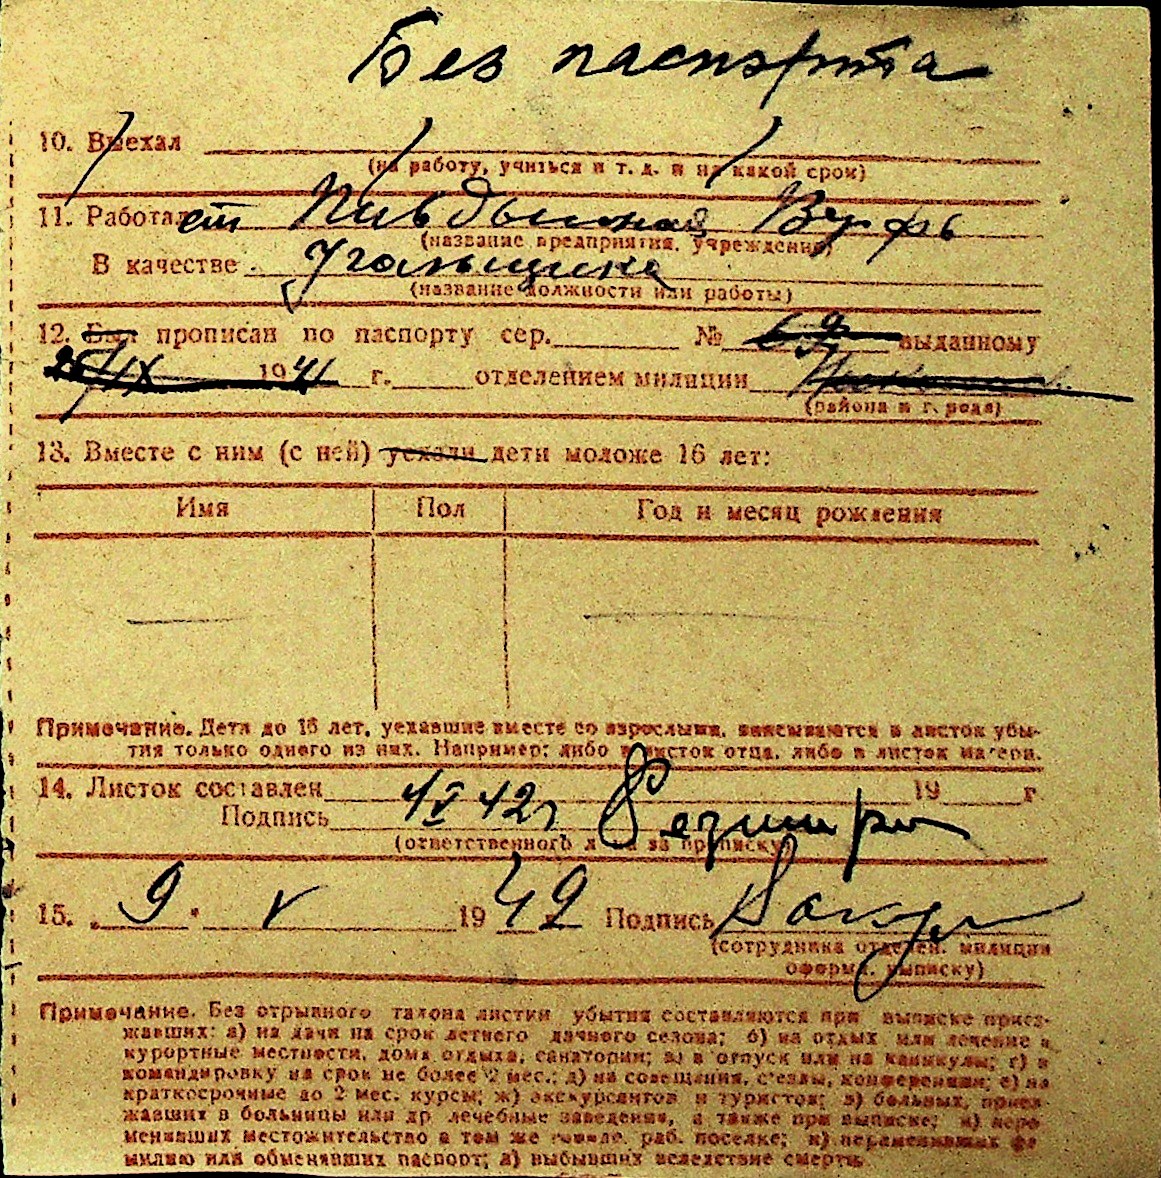 Без паспорта
10. Выехал
(на работу, учиться и т. д. и на какой срок)
11. Работает Верфь
(название предприятия, учреждения)
В качестве Угольщика
(название должности или работы)
12. Был прописан по паспорту сер. № выданному
IX 1941 г. отделением милиции
(района и города)
13. Вместе с ним (с ней) уехали дети моложе 16 лет:
Имя Пол Год и месяц рождения
Примечание. Дети до 16 лет, уехавшие вместе со взрослыми, вписываются в листок убы-
тия только одного из них. Например: либо в листок отца, либо в листок матери.
14. Листок составлен 4 V 42 г 19 г
Подпись
(ответственного лица за прописку)
15. „ 9 " V 1942 Подпись
(сотрудника отделен. милиции
оформ. выписку)
Примечание. Без отрывного талона листки убытия составляются при выписке приез-
жавших: а) на дачи на срок летнего дачного сезона; б) на отдых или лечение в
курортные местности, дома отдыха, санатории; в) в отпуск или на каникулы; г) в
командировку на срок не более 2 мес.; д) на совещания, съезды, конференции; е) на
краткосрочные до 2 мес. курсы; ж) экскурсантов и туристов; з) больных, приез-
жавших в больницы или др. лечебные заведения, а также при выписке; и) пере-
менивших местожительство в том же городе, раб. поселке; к) переменивших фа-
милию или обменявших паспорт; л) выбывших вследствие смерти.